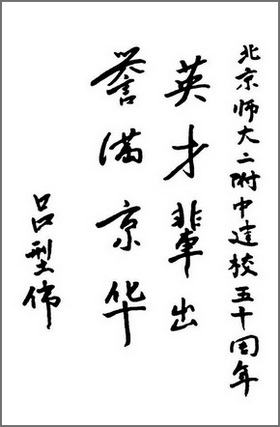 北京师大二附中建校五十周年
英才辈出
誉满京华
吕型伟